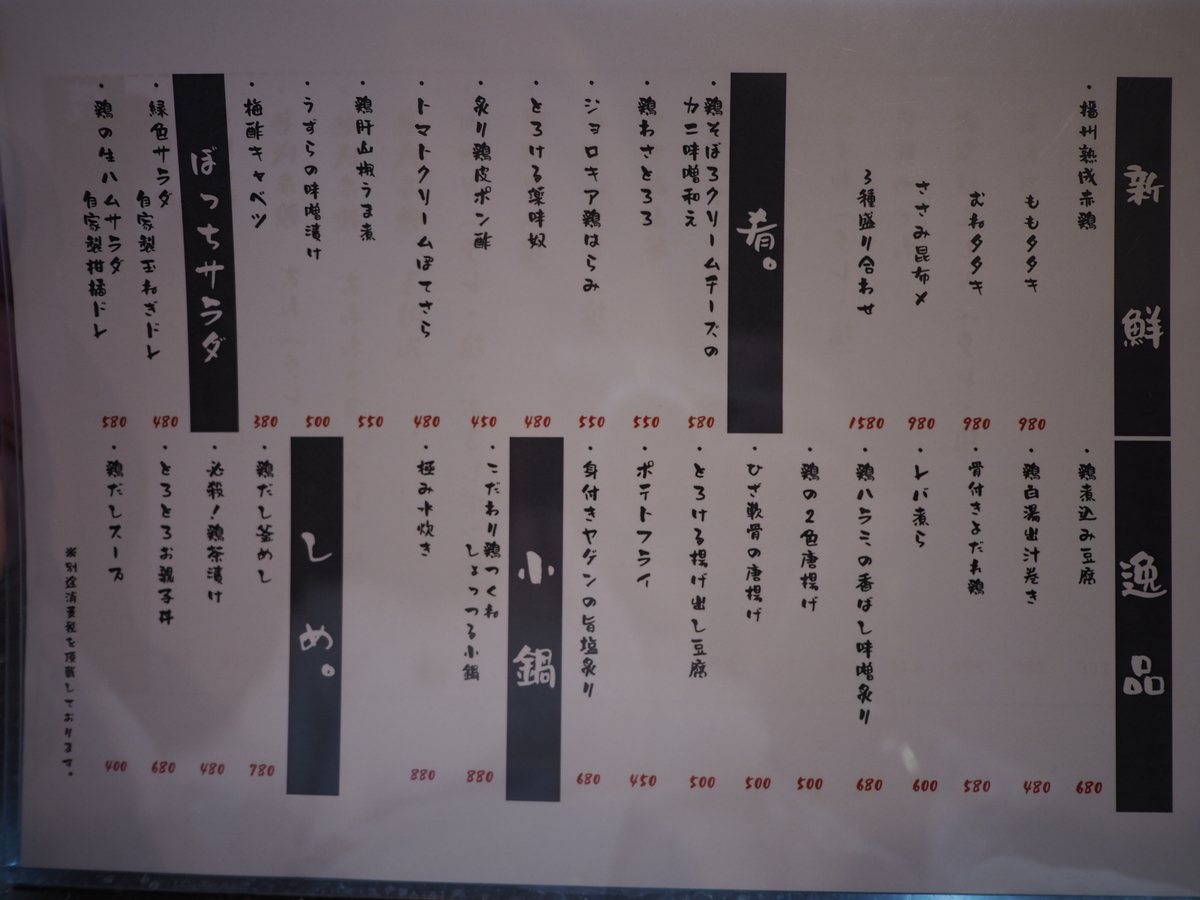 新鮮
・播州熟成赤鶏
ももタタキ 980
むねタタキ 980
ささみ昆布〆 980
3種盛り合わせ 1580
肴。
・鶏そぼろクリームチーズの
カニ味噌和え 580
・鶏わさとろろ 550
・ジョロキア鶏はらみ 550
・とろける薬味奴 480
・炙り鶏皮ポン酢 450
・トマトクリームぽてさら 480
・鶏肝山椒うま煮 550
・うずらの味噌漬け 500
・梅酢キャベツ 380
ぼっちサラダ
・緑色サラダ
自家製玉ねぎドレ 480
・鶏の生ハムサラダ
自家製柑橘ドレ 580
逸品
・鶏煮込み豆腐 680
・鶏白湯出汁巻き 480
・骨付きよだれ鶏 580
・レバ煮ら 600
・鶏ハラミの香ばし味噌炙り 680
・鶏の2色唐揚げ 500
・ひざ軟骨の唐揚げ 500
・とろける揚げ出し豆腐 500
・ポテトフライ 450
・身付きヤゲンの旨塩炙り 680
小鍋
・こだわり鶏つくね
しょっつる小鍋 880
・極み水炊き 880
しめ。
・鶏だし釜めし 780
・必殺!鶏茶漬け 480
・とろとろお親子丼 680
・鶏だしスープ 400
※別途消費税を頂戴しております。